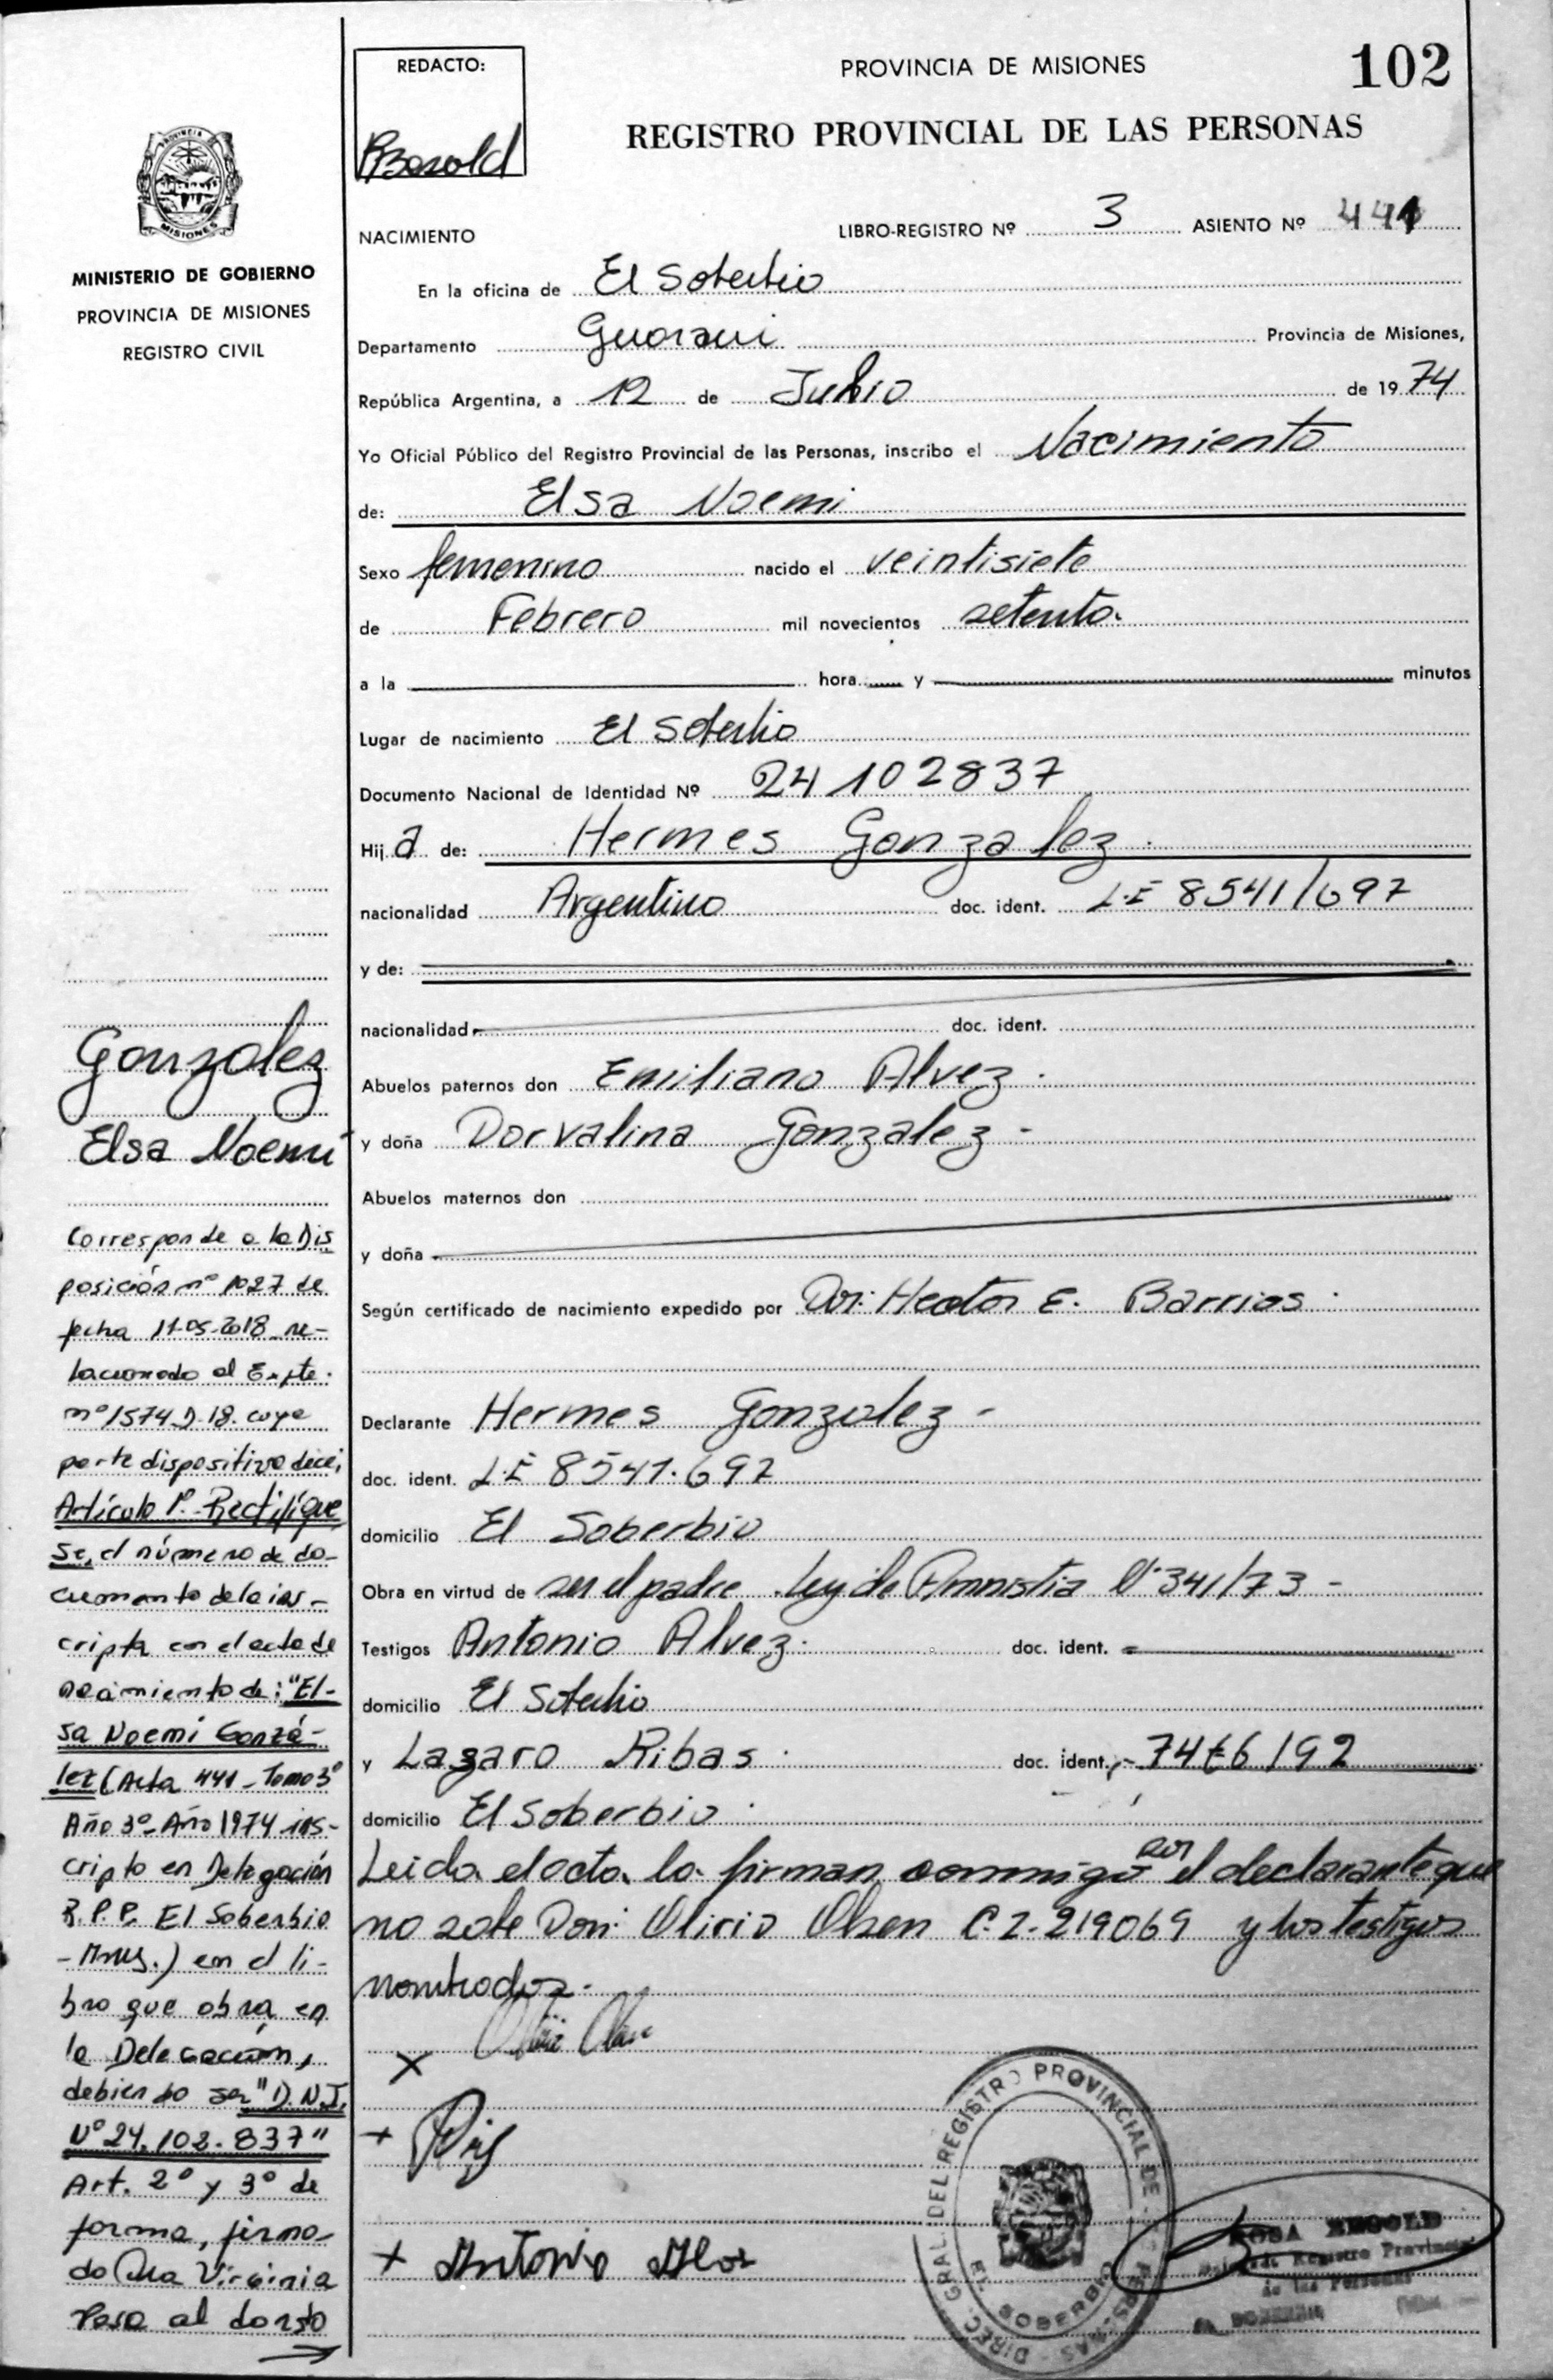 REDACTO:
PROVINCIA DE MISIONES
102
REGISTRO PROVINCIAL DE LAS PERSONAS
MISIONES
MINISTERIO DE GOBIERNO
PROVINCIA DE MISIONES
REGISTRO CIVIL
NACIMIENTO
LIBRO-REGISTRO Nº 3 ASIENTO Nº 441
En la oficina de El Soberbio
Departamento Guarani Provincia de Misiones,
República Argentina, a 12 de Junio de 1974
Yo Oficial Público del Registro Provincial de las Personas, inscribo el Nacimiento
de: Elsa Noemi
Sexo femenino nacido el veintisiete
de Febrero mil novecientos setenta.
a la hora y minutos
Lugar de nacimiento El Soberbio
Documento Nacional de Identidad Nº 24102837
Hija de: Hermes Gonzalez.
nacionalidad Argentino doc. ident. L.E 8541/697
y de:
nacionalidad doc. ident.
Abuelos paternos don Emiliano Alvez.
y doña Dorvalina Gonzalez -
Abuelos maternos don
y doña
Según certificado de nacimiento expedido por Dr: Hector E. Barrios.
Declarante Hermes Gonzalez -
doc. ident. L.E 8541.697
domicilio El Soberbio
Obra en virtud de ser el padre. Ley de Amnistia Nº 341/73 -
Testigos Antonio Alvez. doc. ident.
domicilio El Soberbio
y Lazaro Ribas. doc. ident. 74 6192
domicilio El Soberbio.
Leida el acta la firman conmigo por el declarante que
no sabe Don: Olirio Olsen C.I. 219069 y los testigos
nombrados.
+ Antonio
Gonzalez
Elsa Noemi
Corresponde a la Dis
posición nº 1027 de
fecha 11-05-2018 re-
lacionado al Expte.
nº 1574 D-18. cuya
parte dispositiva dice:
Artículo 1º.-Rectifíque
se, el número de do-
cumento de la ins-
cripta en el acta de
nacimiento de: "El-
sa Noemí Gonzá-
lez (Acta 441 - Tomo 3º
Año 3º-Año 1974 ins-
cripto en Delegación
R.P.P. El Soberbio
-Mnes.) en el li-
bro que obra en
la Delegación,
debiendo ser "D.N.I.
Nº 24.102.837"
Art. 2º y 3º de
forma, firma
do Dra Virginia
Pasa al dorso
DIREC. GRAL. DEL REGISTRO PROVINCIAL DE
EL SOBERBIO
ROSA BESOLD
Registro Provincial
de las Personas